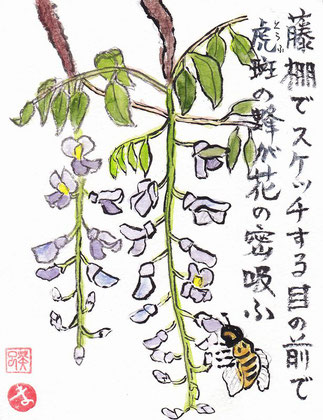 藤棚でスケッチする目の前で
虎斑の蜂が花の密吸ふ
とらふ